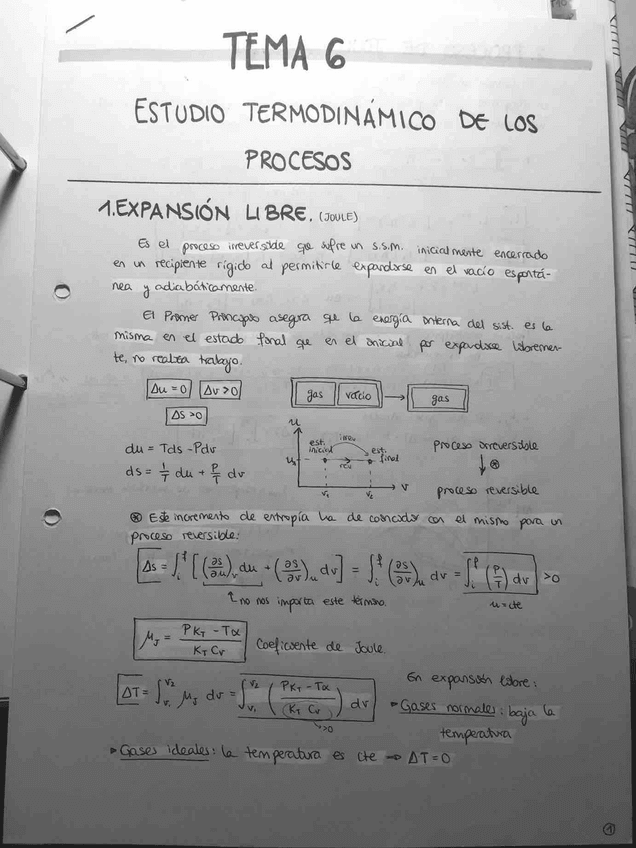 TEMA 6
ESTUDIO TERMODINÁMICO DE LOS
PROCESOS
1. EXPANSIÓN LIBRE. (JOULE)
Es el proceso irreversible que sufre un s.s.m. inicialmente encerrado
en un recipiente rígido al permitirle expandirse en el vacío espontá-
nea y adiabáticamente.
El Primer Principio asegura que la energía interna del sist. es la
misma en el estado final que en el inicial por expandirse libremen-
te, no realiza trabajo.
Δu = 0 Δv > 0
ΔS > 0
gas vacío → gas
du = Tds - Pdv
ds = 1/T du + P/T dv
u
est. inicial
irrev
est. final
rev
u₀
v₁ v₂ v
proceso irreversible
↓ ⊛
proceso reversible
⊛ Este incremento de entropía ha de coincidir con el mismo para un
proceso reversible:
Δs = ∫ᵢᶠ [(∂s/∂u)ᵥ du + (∂s/∂v)ᵤ dv] = ∫ᵢᶠ (∂s/∂v)ᵤ dv = ∫ᵢᶠ (P/T) dv > 0
no nos importa este término.
u = cte
μ_J = (P K_T - Tα) / (K_T C_v) Coeficiente de Joule.
ΔT = ∫_{v₁}^{v₂} μ_J dv = ∫_{v₁}^{v₂} ((P K_T - Tα) / (K_T C_v)) dv
>0
En expansión libre:
▸ Gases normales: baja la
temperatura
▸ Gases ideales: la temperatura es cte ⇒ ΔT = 0
1